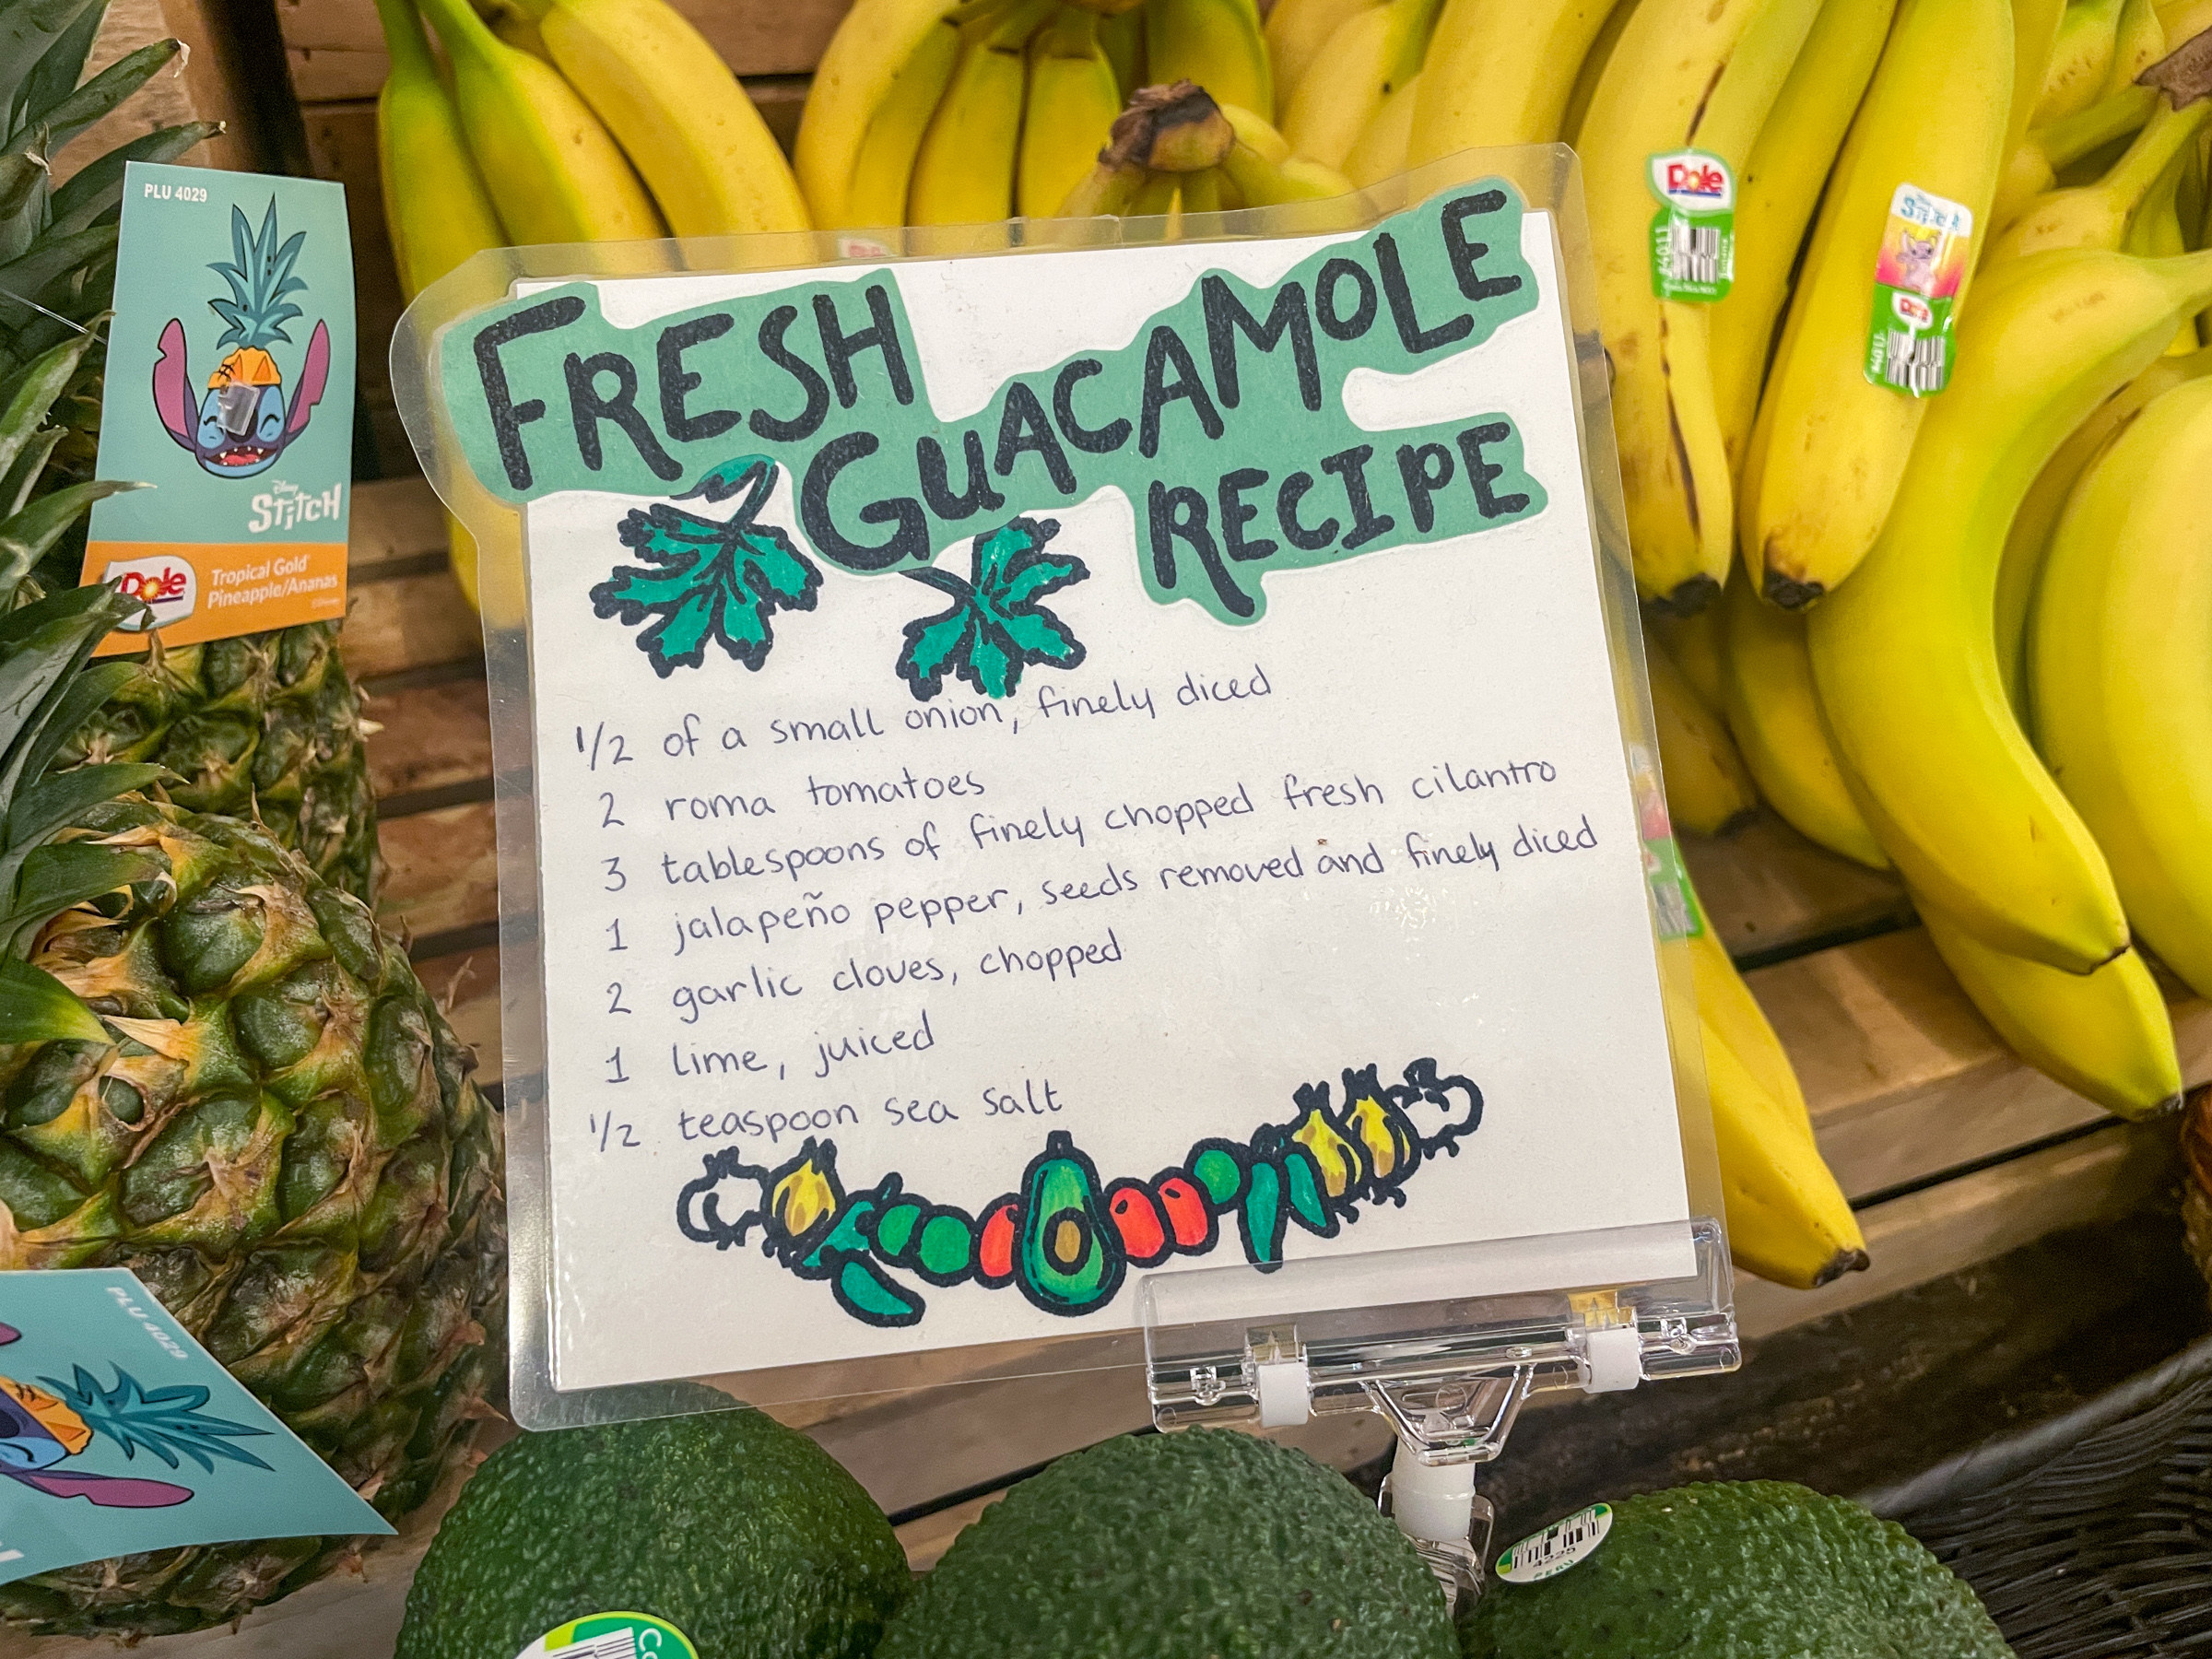 FRESH
GUACAMOLE
RECIPE
1/2 of a small onion, finely diced
2 roma tomatoes
3 tablespoons of finely chopped fresh cilantro
1 jalapeño pepper, seeds removed and finely diced
2 garlic cloves, chopped
1 lime, juiced
1/2 teaspoon sea salt
PLU 4029
Disney
Stitch
Dole
Tropical Gold
Pineapple/Ananas
PLU 4029
Dole
#4011
Stitch
Dole
4011
4225
PERU